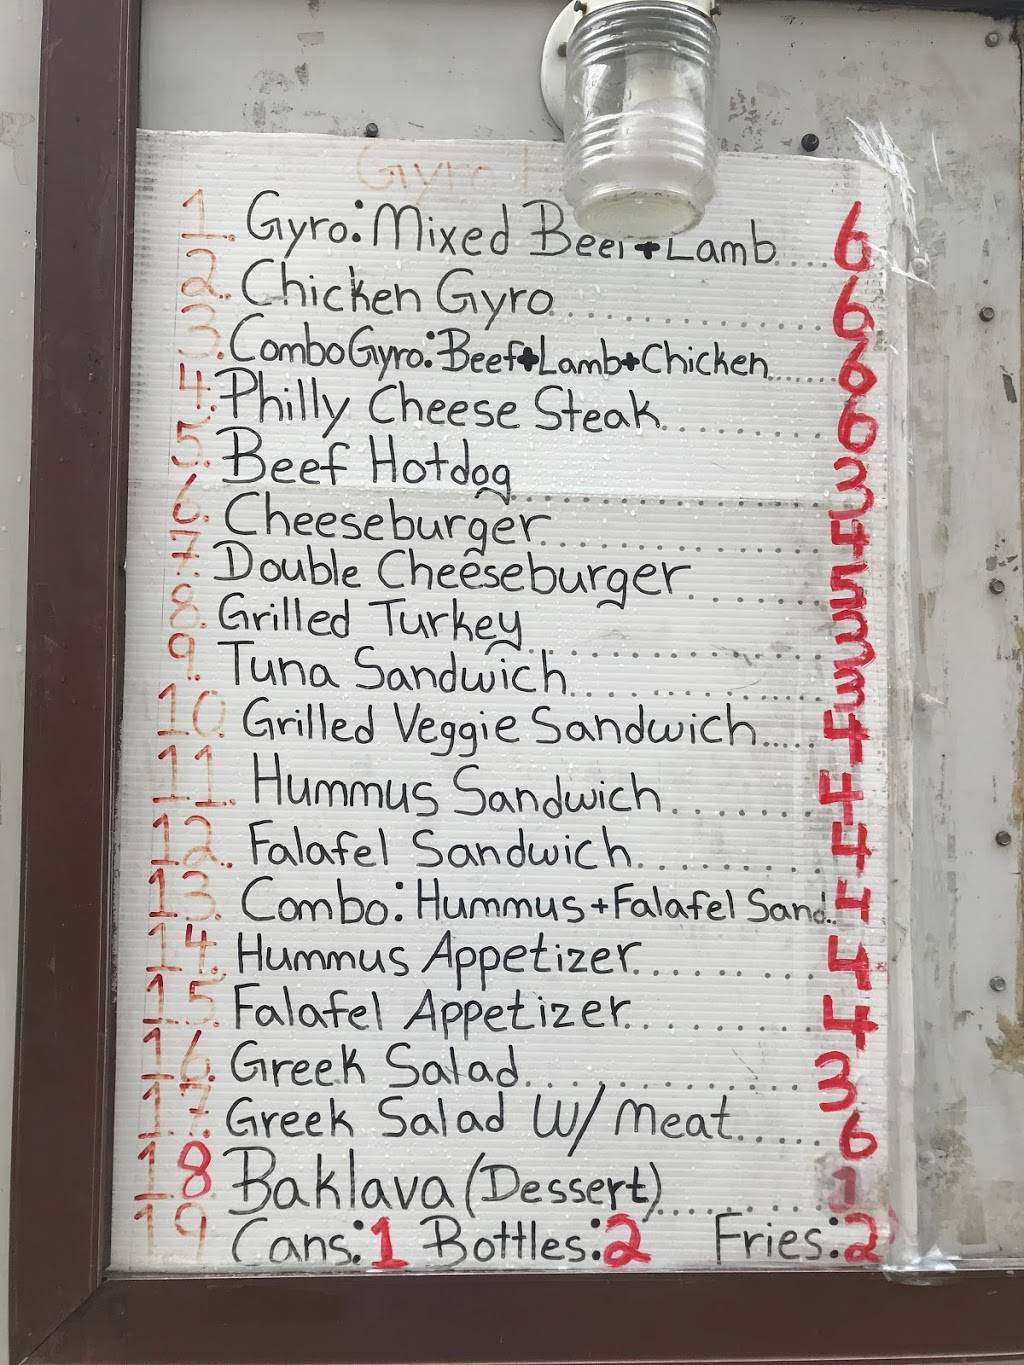 Gyro
1. Gyro: Mixed Beef + Lamb.... 6
2. Chicken Gyro............. 6
3. Combo Gyro: Beef + Lamb + Chicken...... 6
4. Philly Cheese Steak......... 6
5. Beef Hotdog............... 3
6. Cheeseburger............. 4
7. Double Cheeseburger....... 5
8. Grilled Turkey............. 3
9. Tuna Sandwich............. 3
10. Grilled Veggie Sandwich..... 4
11. Hummus Sandwich....... 4
12. Falafel Sandwich........ 4
13. Combo: Hummus + Falafel Sand.. 4
14. Hummus Appetizer........ 4
15. Falafel Appetizer........ 4
16. Greek Salad............. 3
17. Greek Salad W/ Meat..... 6
18 Baklava (Dessert)........ 1
19 Cans: 1 Bottles: 2 Fries: 2